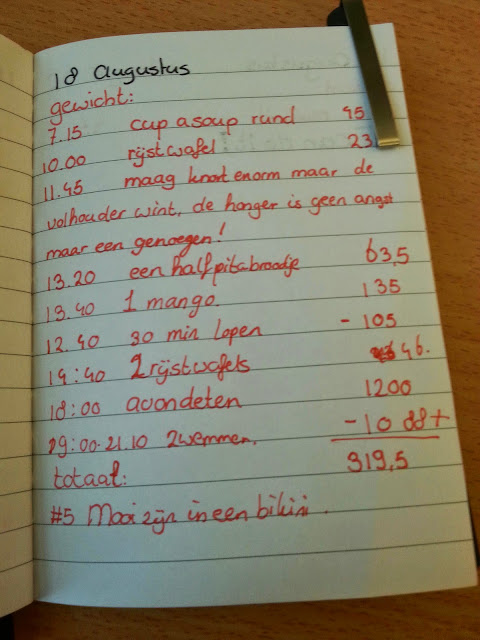 18 augustus
gewicht:
7.15 cup a soup rund 45
10.00 rijstwafel 23
11.45 maag knort enorm maar de
volhouder wint, de honger is geen angst
maar een genoegen!
13.20 een half pitabroodje 63,5
13.40 1 mango 135
12.40 30 min lopen - 105
14:40 2 rijstwafels 46.
18:00 avondeten 1200
29:00-21.10 zwemmen. - 1088+
totaal: 319,5
#5 Mooi zijn in een bikini.